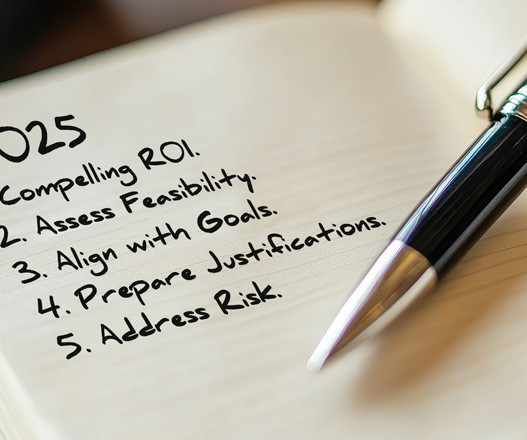 025
Compelling ROI.
2. Assess Feasibility.
3. Align with Goals.
4. Prepare Justifications.
5. Address Risk.